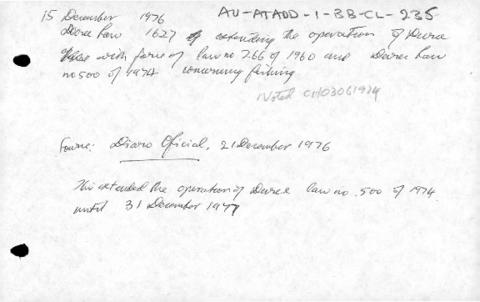 15 December 1976 AU-ATADD-1-BB-CL-235
Decree Law 1627 extending the operation of Decree
with force of law no 266 of 1960 and Decree Law
no 500 of 1974 concerning fishing
Noted CH03061974
Source: Diario Oficial, 21 December 1976
This extended the operation of Decree law no. 500 of 1974
until 31 December 1977